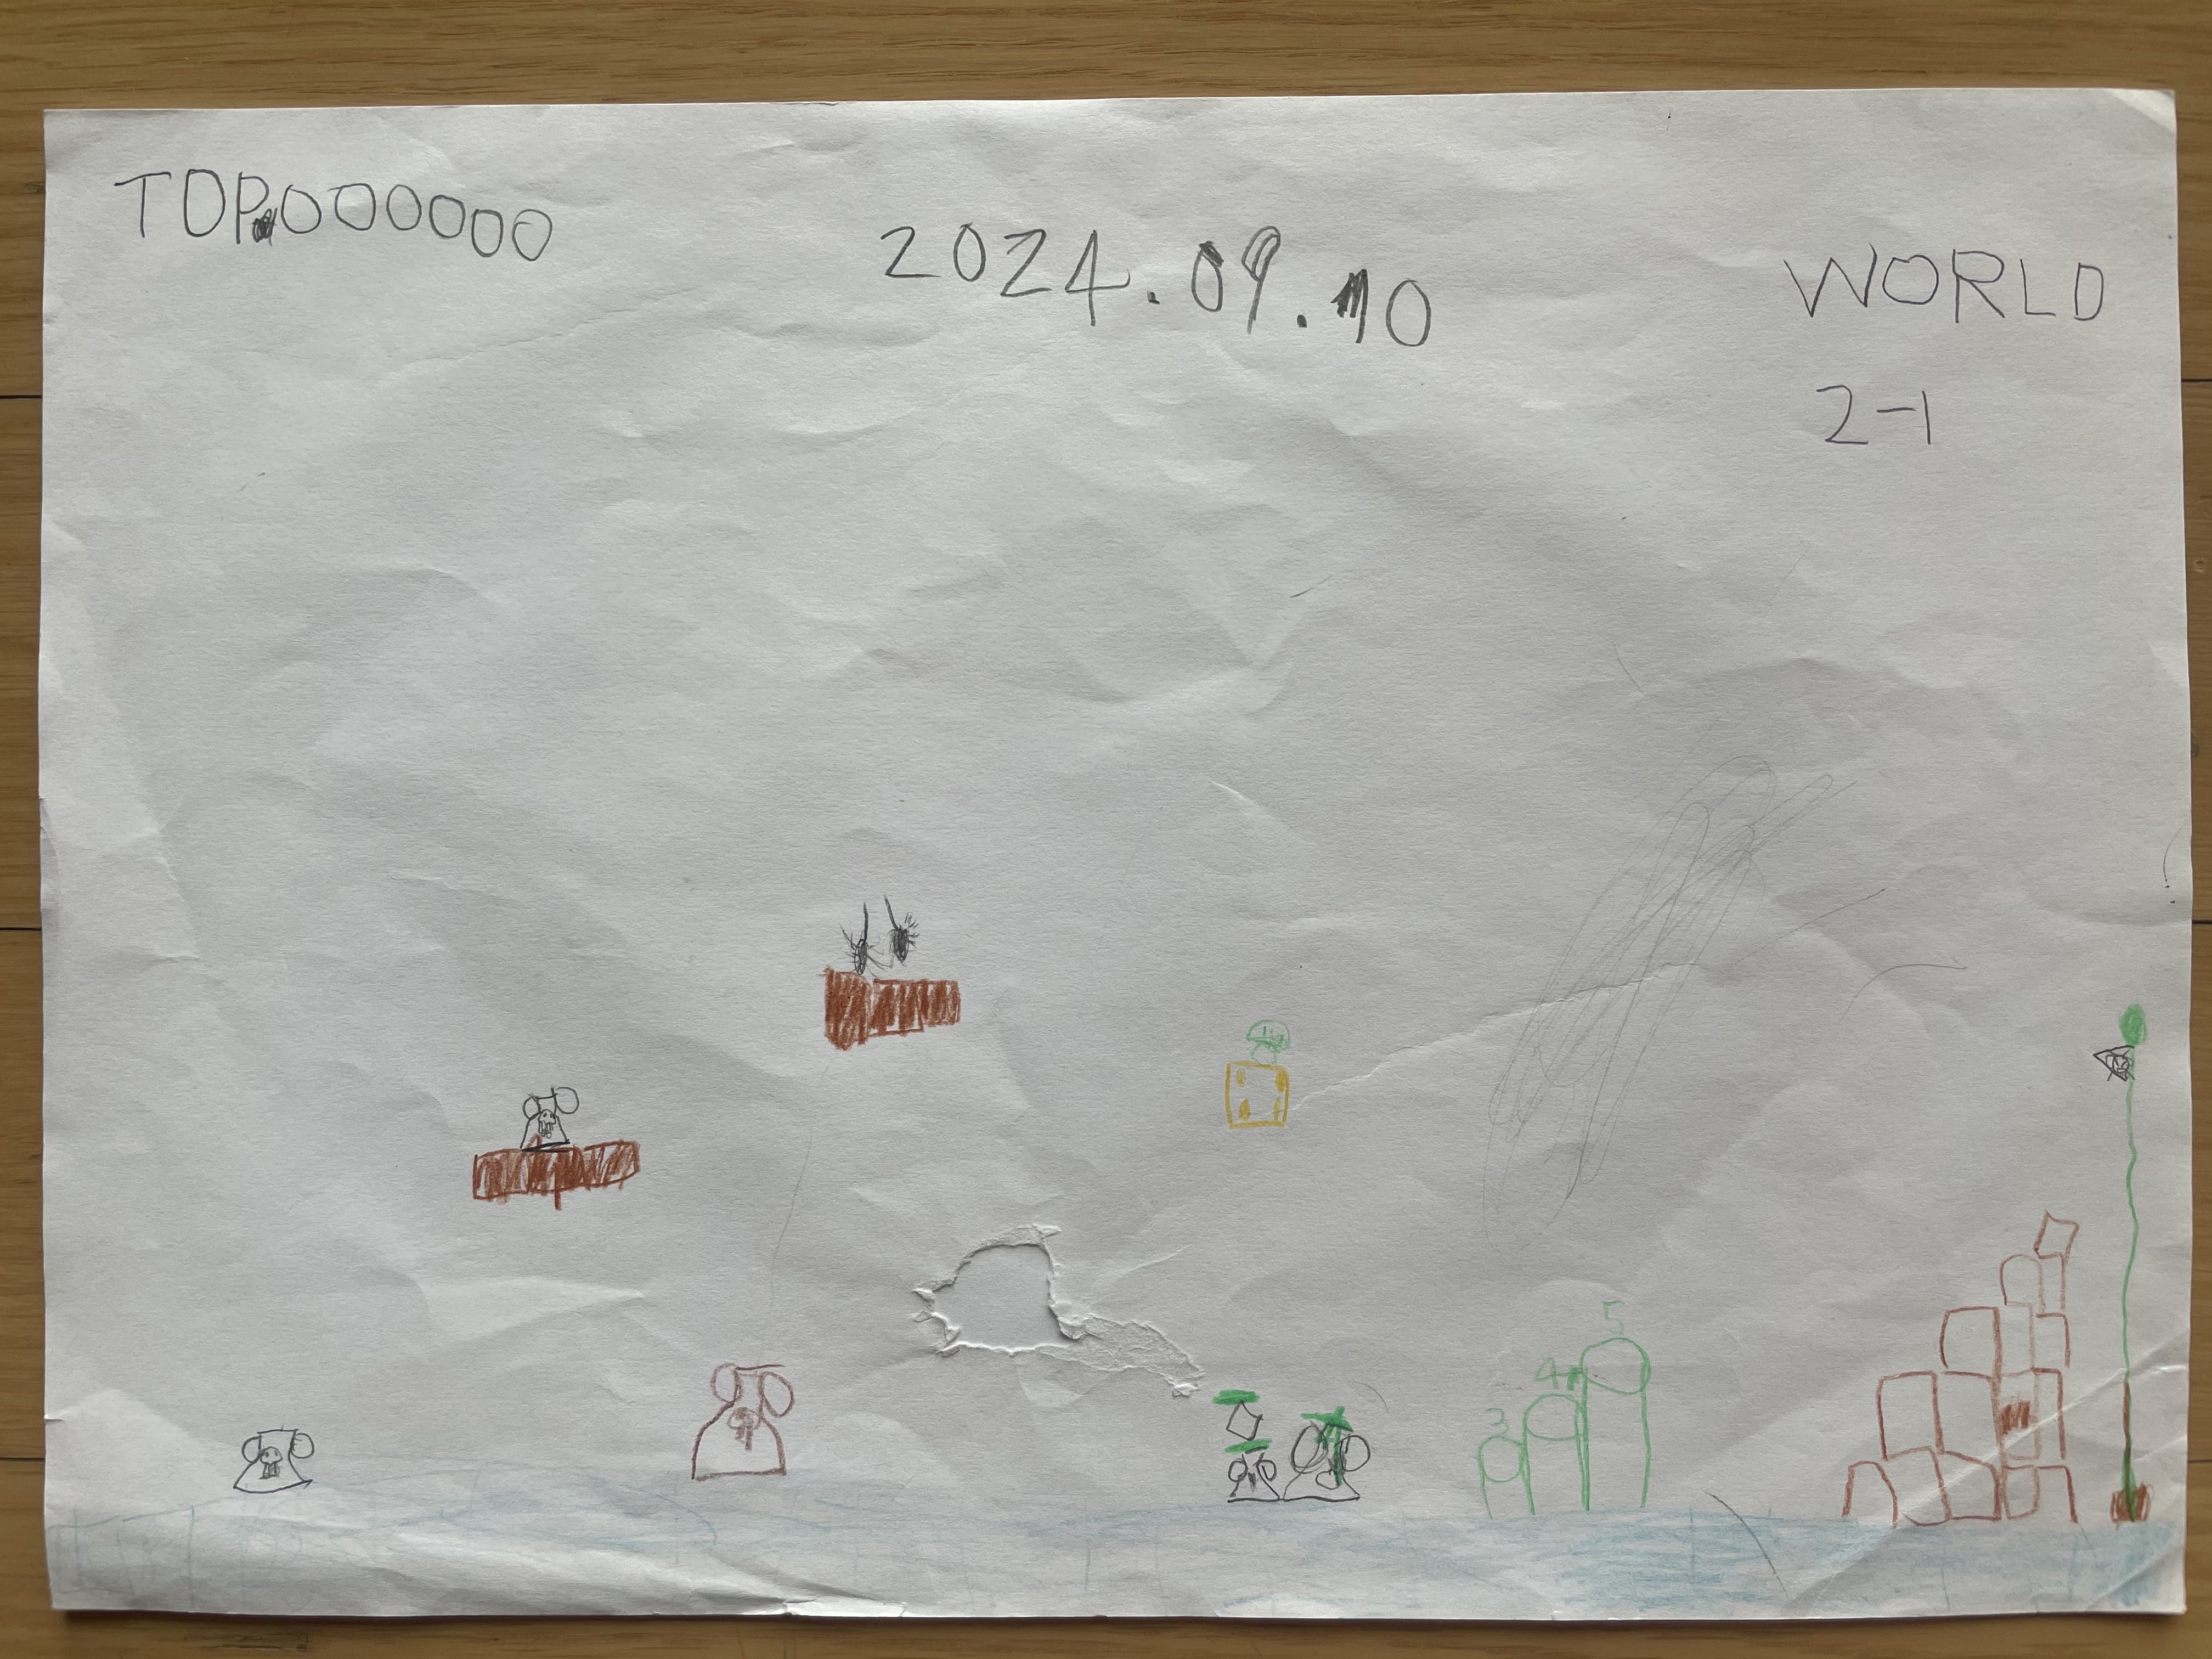 TOP.000000
2024.09.10
WORLD
2-1
3 4 5